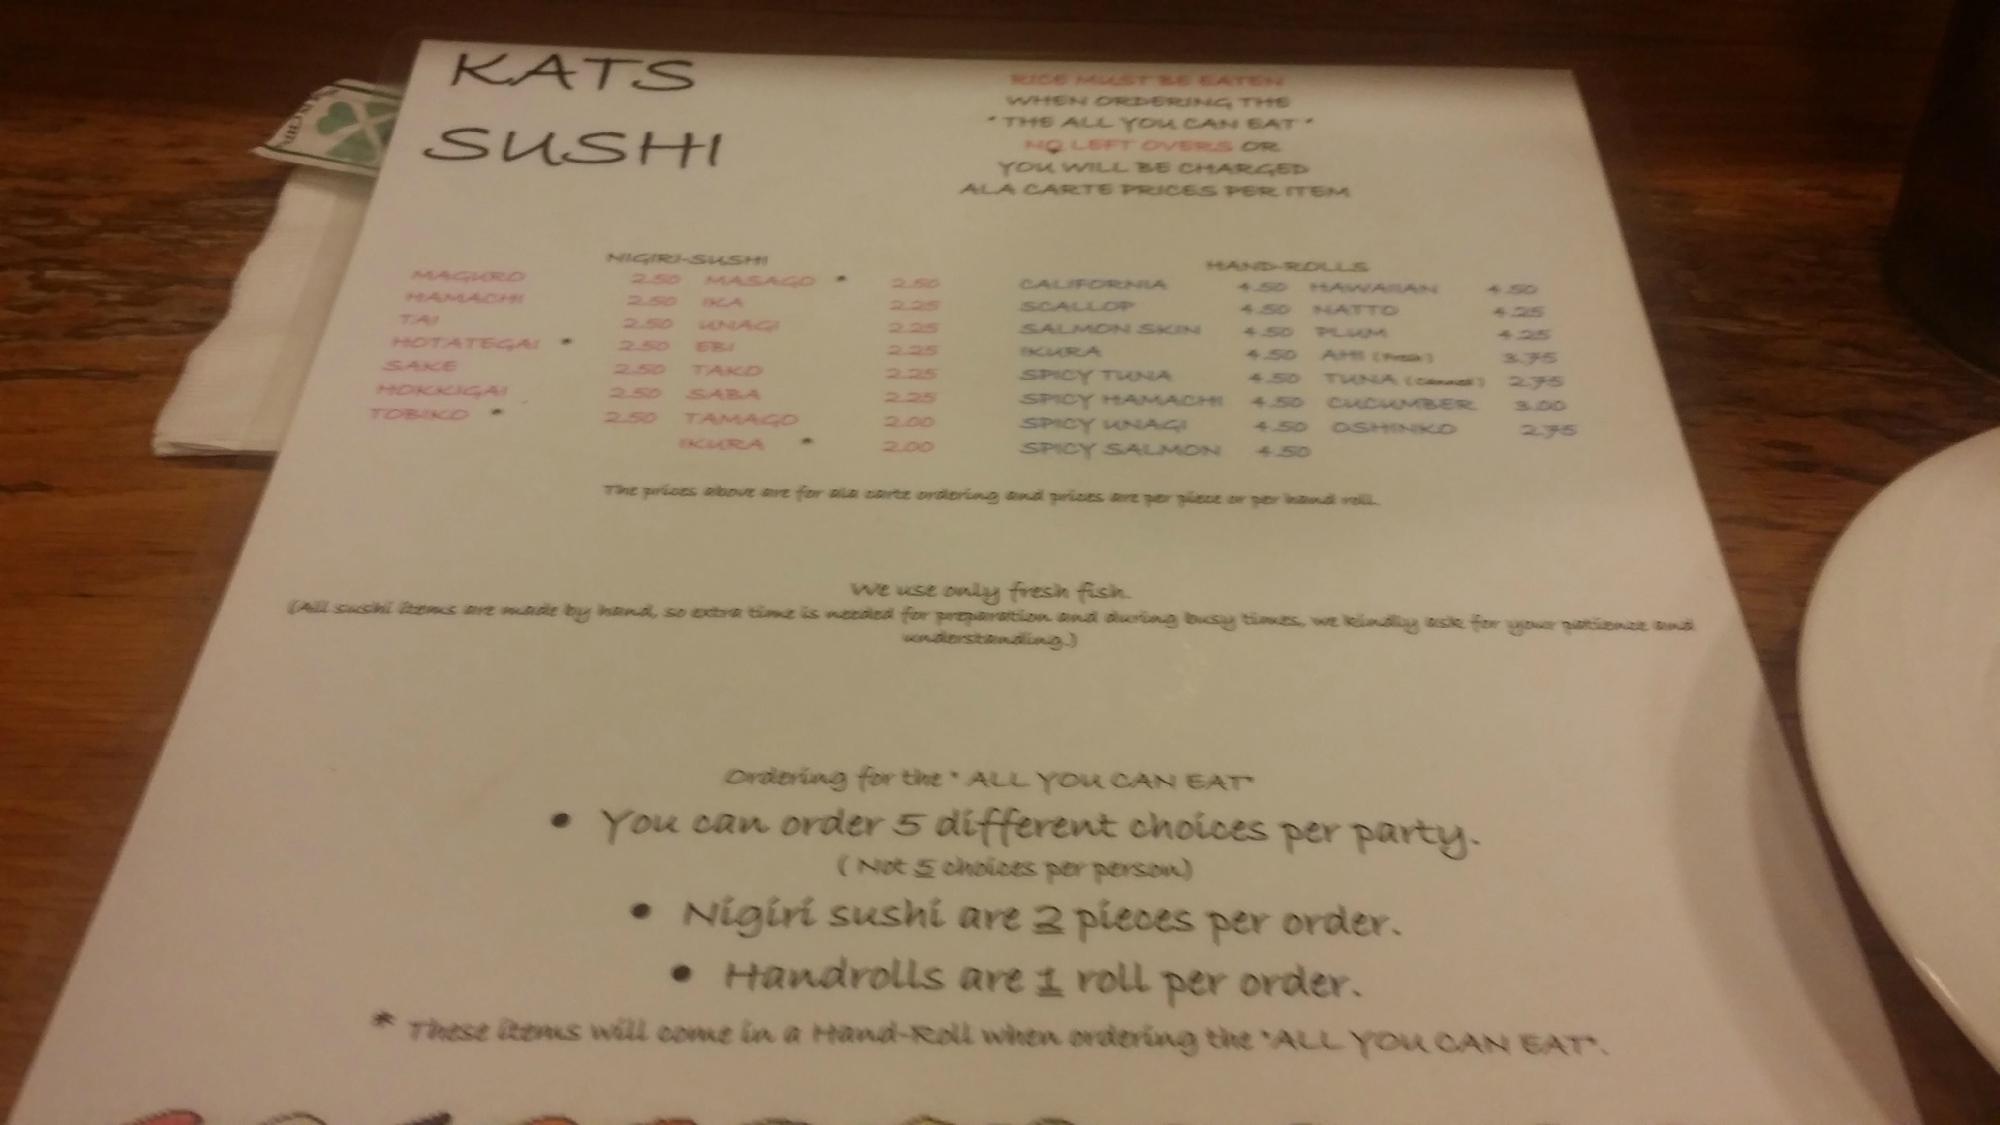 KATS
SUSHI
RICE MUST BE EATEN
WHEN ORDERING THE
"THE ALL YOU CAN EAT"
NO LEFT OVERS OR
YOU WILL BE CHARGED
ALA CARTE PRICES PER ITEM
NIGIRI-SUSHI
MAGURO 2.50 MASAGO * 2.50
HAMACHI 2.50 IKA 2.25
TAI 2.50 UNAGI 2.25
HOTATEGAI * 2.50 EBI 2.25
SAKE 2.50 TAKO 2.25
HOKKIGAI 2.50 SABA 2.25
TOBIKO * 2.50 TAMAGO 2.00
IKURA * 2.00
HAND-ROLLS
CALIFORNIA 4.50 HAWAIIAN 4.50
SCALLOP 4.50 NATTO 4.25
SALMON SKIN 4.50 PLUM 4.25
IKURA 4.50 AHI (Fresh) 3.75
SPICY TUNA 4.50 TUNA (Canned) 2.75
SPICY HAMACHI 4.50 CUCUMBER 3.00
SPICY UNAGI 4.50 OSHINKO 2.75
SPICY SALMON 4.50
The prices above are for ala carte ordering and prices are per piece or per hand roll.
We use only fresh fish.
(All sushi items are made by hand, so extra time is needed for preparation and during busy times, we kindly ask for your patience and
understanding.)
Ordering for the "ALL YOU CAN EAT"
• You can order 5 different choices per party.
(Not 5 choices per person)
• Nigiri sushi are 2 pieces per order.
• Handrolls are 1 roll per order.
* These items will come in a Hand-Roll when ordering the "ALL YOU CAN EAT".